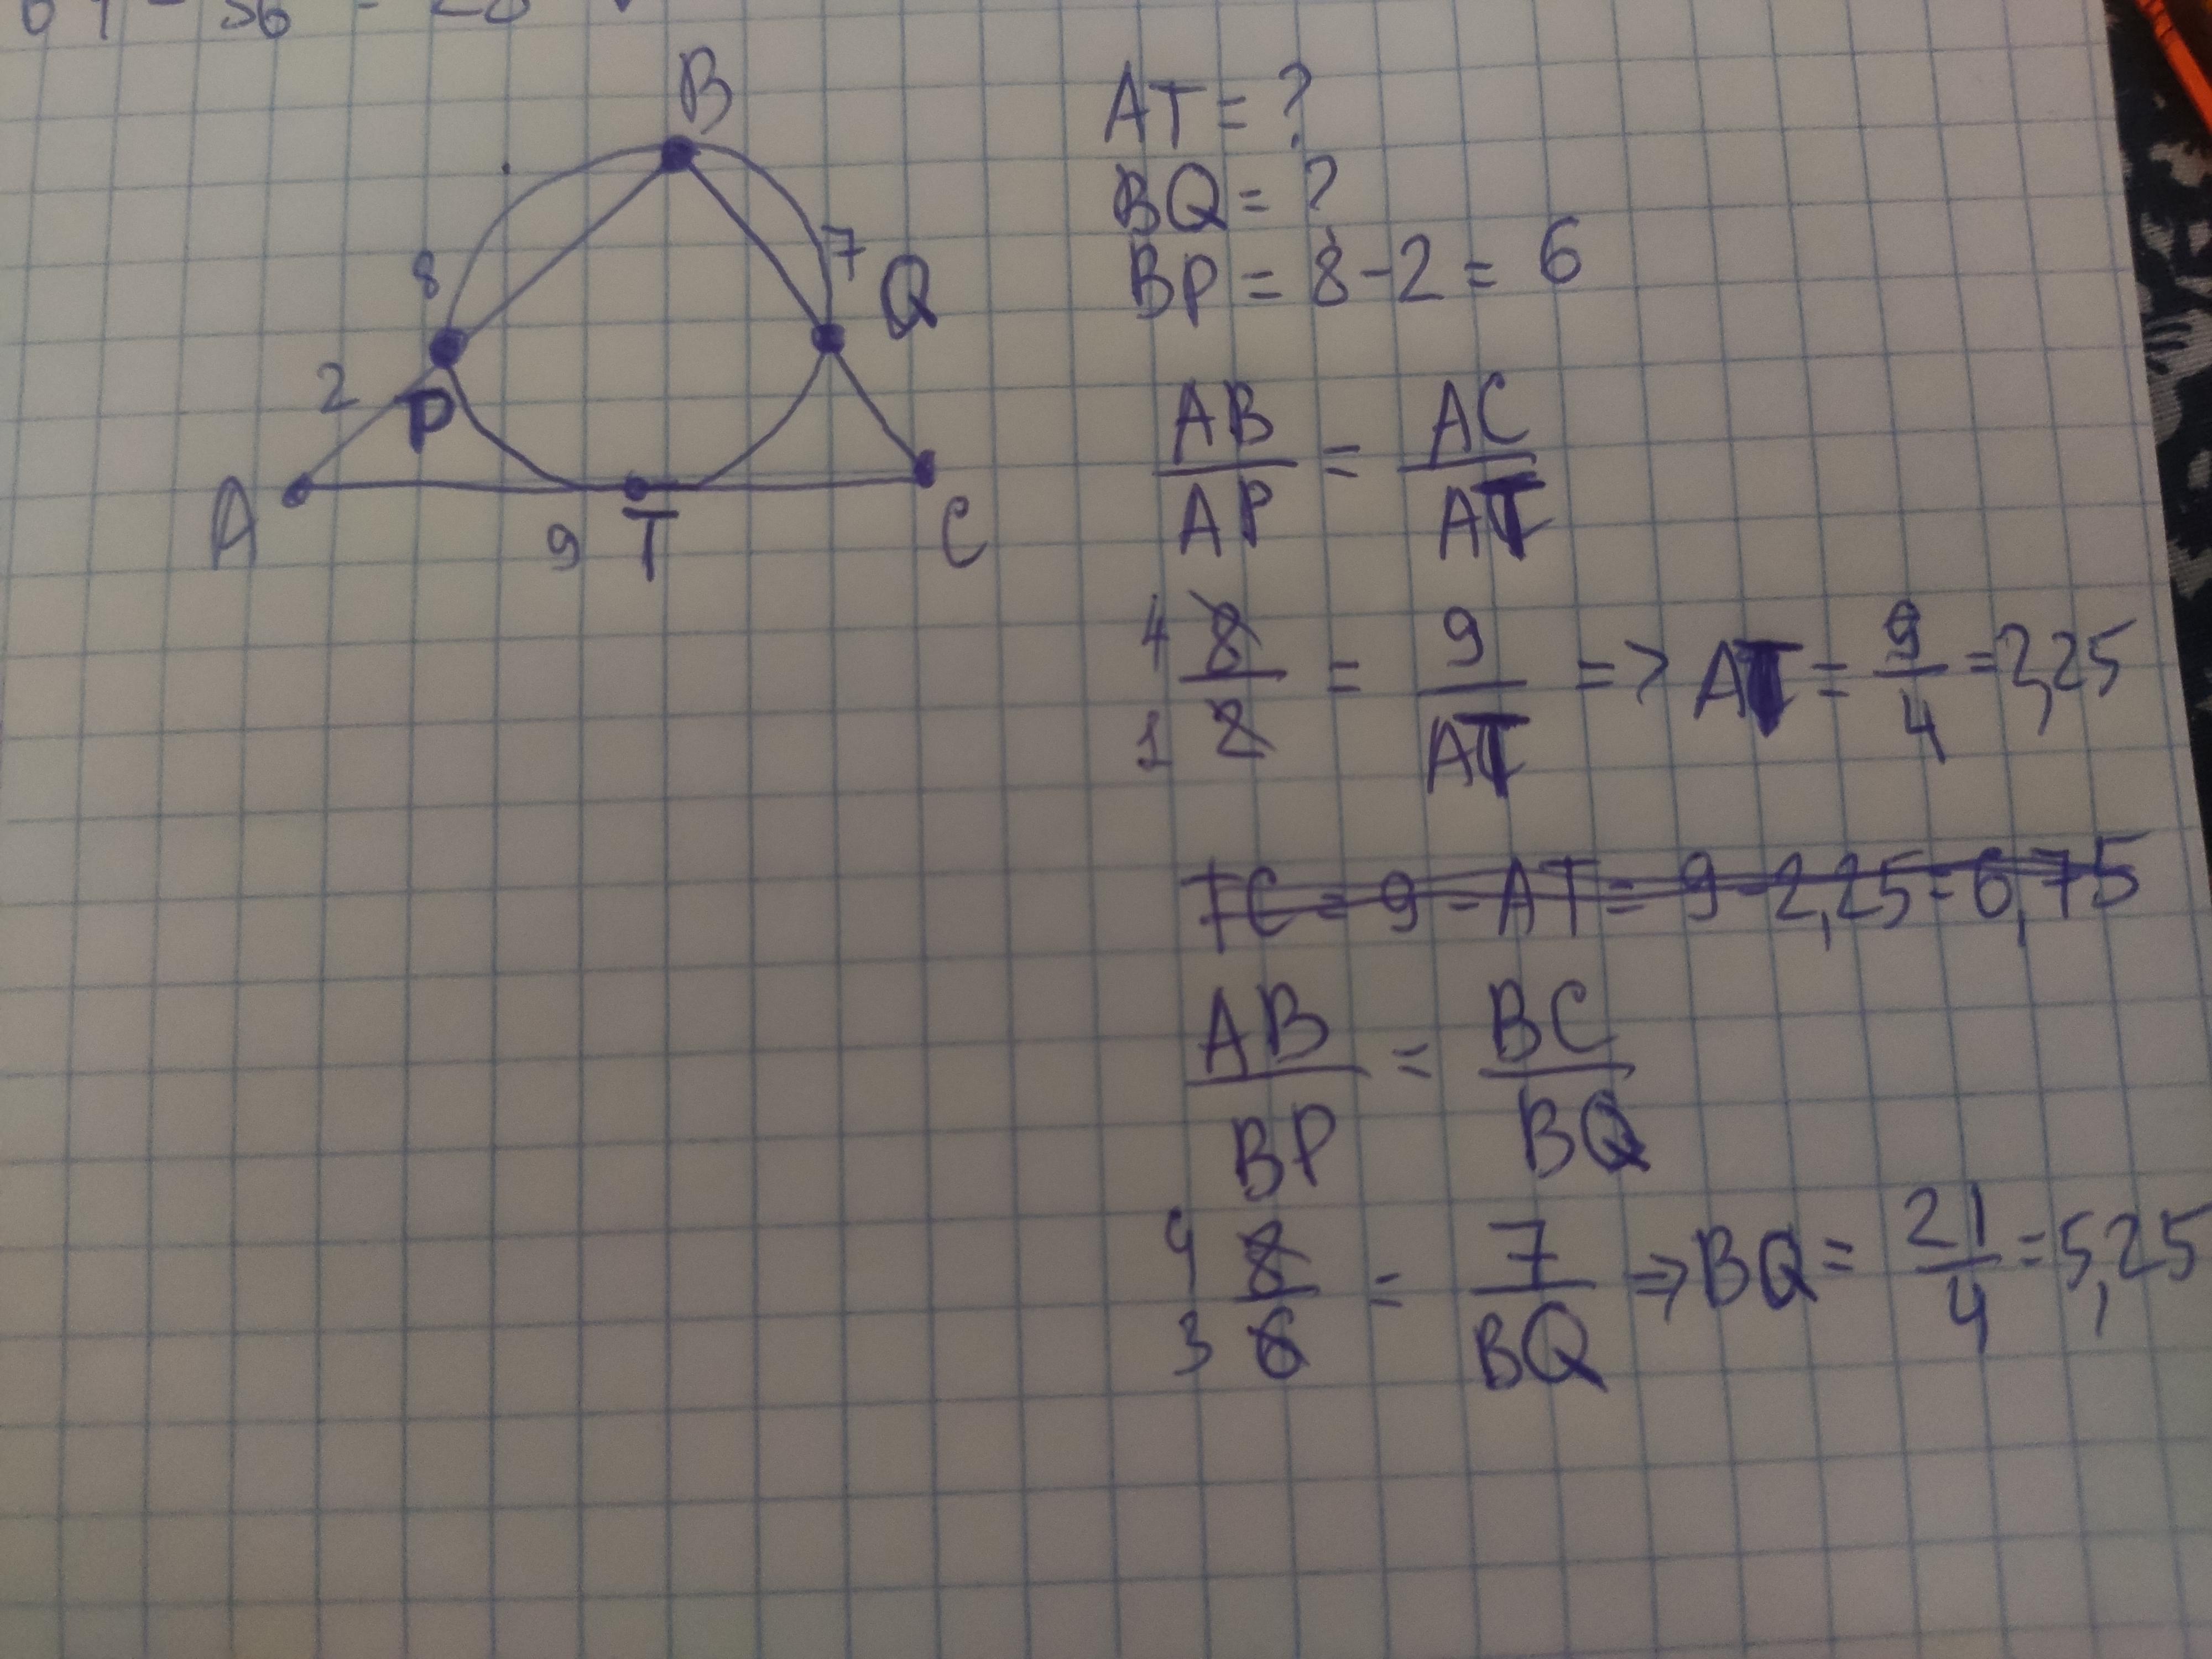 B
8
7
Q
2
P
A
9
T
C
AT = ?
BQ = ?
BP = 8 - 2 = 6
AB/AP = AC/AT
4 8/1 2 = 9/AT => AT = 9/4 = 2,25
TC = 9 - AT = 9 - 2,25 = 6,75
AB/BP = BC/BQ
4 8/3 6 = 7/BQ => BQ = 21/4 = 5,25